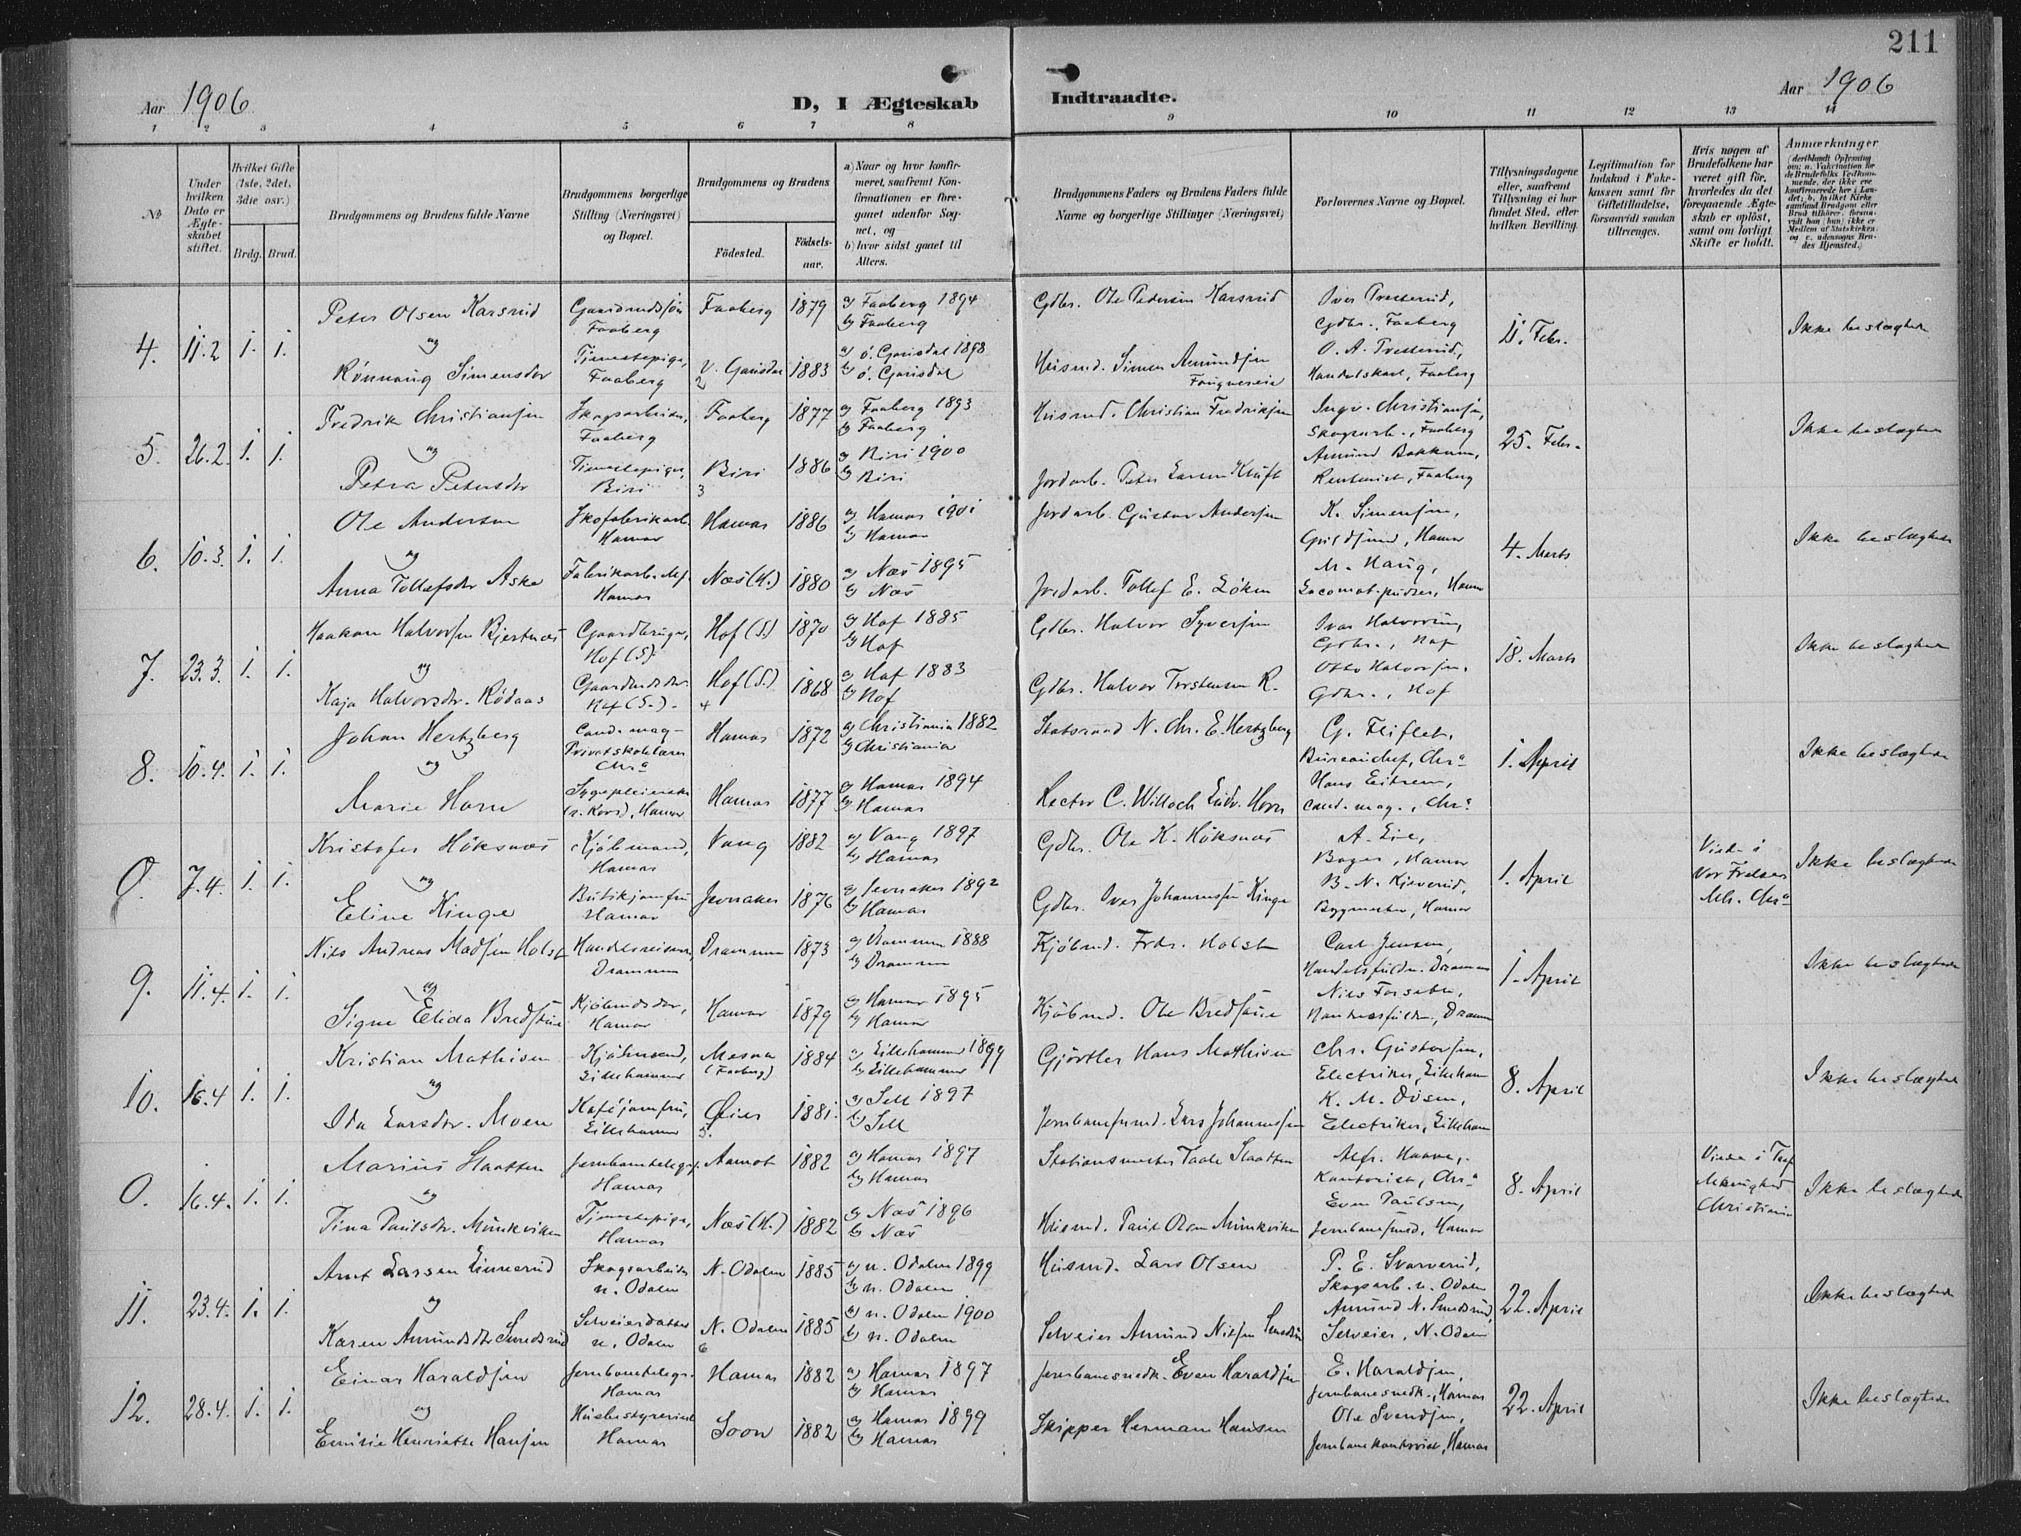 211
Aar 1906
D, I Ægteskab Indtraadte.
Aar 1906
1 2 3 4 5 6 7 8 9 10 11 12 13 14
No
Under hvilken Dato er Ægteskabet stiftet.
Hvilket Gifte (1ste, 2det, 3die osv.)
Brdg. Brud.
Brudgommens og Brudens fulde Navne
Brudgommens borgerlige Stilling (Næringsvei) og Bopæl.
Brudgommens og Brudens
Födested.
Födselsaar.
a) Naar og hvor konfirmeret, saafremt Konfirmationen er foregaaet udenfor Sognet, og
b) hvor sidst gaaet til Alters.
Brudgommens Faders og Brudens Faders fulde Navne og borgerlige Stillinger (Næringsvei)
Forlovernes Navne og Bopæl.
Tillysningsdagene eller, saafremt Tillysning ei har fundet Sted, efter hvilken Bevilling.
Legitimation for Indskud i Enkekassen samt for Giftetilladelse, forsaavidt saadan tiltrænges.
Hvis nogen af Brudefolkene har været gift før, hvorledes da det foregaaende Ægteskab er oplöst, samt om lovligt Skifte er holdt.
Anmærkninger
4. 11.2 1. 1.
Peter Olsen Karsrud
Faaberg
Faaberg 1879
a) Faaberg 1894
b) Faaberg
Gdbr. Ole Pedersen Karsrud
Iver Tresserud,
Gdbr., Faaberg
11. Febr.
Ikke beslægtede
og
Rønnaug Simensdr
Tjenestepige,
Faaberg
V. Gausdal 1883
2
a) ö. Gausdal 1898
b) ö. Gausdal
Husmd. Simen Amundsen
O. A. Tresserud,
Handelskarl, Faaberg
5. 26.2. 1. 1.
Fredrik Christiansen
Skogsarbeider,
Faaberg
Faaberg 1877
a) Faaberg 1893
b) Faaberg
Husmd. Christian Fredriksen
Ingv. Christiansen,
Skogsarb., Faaberg
25. Febr.
Ikke beslægtede
og
Petra Petersdr
Tjenestepige,
Biri
Biri 1886
3
a) Biri 1900
b) Biri
Jordarb. Peter Larsen Kluft
Amund Bakken,
Rentenist, Faaberg
6. 10.3. 1. 1.
Ole Andersen
Skofabrikarb.
Hamar
Hamar 1886
a) Hamar 1901
b) Hamar
Jordarb. Gustav Andersen
K. Simensen,
Guldsmed, Hamar
4. Marts
Ikke beslægtede
og
Anna Tollefsdr Aske
Fabrikarb.
Hamar
Næs (H.) 1880
a) Næs 1895
b) Næs
Jordarb. Tollef E. Löken
M. Haug,
Locomot.pudser, Hamar
7. 23.3. 1. 1.
Haakon Halvorsen Bjertnæs
Gaardbruger,
Hof (S).
Hof (S.) 1870
a) Hof 1885
b) Hof
Gdbr. Halvor Syversen
Ivar Halvorsen,
Gdbr., Hof
18. Marts
Ikke beslægtede
og
Kaja Halvorsdr. Rödaas
Hof (S.).
Hof (S.) 1868
4
a) Hof 1883
b) Hof
Gdbr. Halvor Torstensen R.
Otto Halvorsen.
Gdbr., Hof
8. 10.4. 1. 1.
Johan Hertzberg
Cand. mag-
Privatskolelærer
Chra
Hamar 1872
a) Christiania 1882
b) Christiania
Statsraad N. Chr. E. Hertzberg
G. Fliflet,
Bureauchef, Chra
1. April
Ikke beslægtede
og
Marie Horn
Sygepleierske
(r. Kors), Hamar
Hamar 1877
a) Hamar 1894
b) Hamar
Rector C. Willoch Ludv. Horn
Hans Eitrem,
cand. mag., Chra
0. 7.4. 1. 1.
Kristofer Höksnæs
Kjöbmand,
Hamar
Vang 1882
a) Vang 1897
b) Hamar
Gdbr. Ole K. Höksnæs
A. Lie,
Bager, Hamar
1. April
Viede i
Vor Frelsers
Mh. Chra
Ikke beslægtede
og
Eline Kinge
Butikjomfru
Hamar
Jevnaker 1876
a) Jevnaker 1892
b) Hamar
Gdbr. Iver Johannessen Kinge
B. N. Kjeverud,
Bygmester, Hamar
9. 11.4. 1. 1.
Nils Andreas Madsen Holst
Handelsreisende,
Drammen
Drammen 1873
a) Drammen 1888
b) Drammen
Kjöbmd. Frdr. Holst
Carl Jensen,
Handelsfuldm. Drammen
1. April
Ikke beslægtede
og
Signe Elida Bredstue
Kjöbmdsdr,
Hamar
Hamar 1879
a) Hamar 1895
b) Hamar
Kjöbmd. Ole Bredstue
Nils
10. 16.4 1. 1.
Kristian Mathisen
Kjöbmand,
Lillehammer
Mesna
(Faaberg)
1884
a) Lillehammer 1899
b) Lillehammer
Gjörtler Hans Mathisen
Chr. Gustavsen,
Electriker, Lilleham
8. April
Ikke beslægtede
og
Ida Larsdr. Moen
Kaféjomfru,
Lillehammer
Öier 1881.
5.
a) Sell 1897
b) Sell
Jernbaneformd. Lars Johannessen
K. M. Olsen,
Electriker, Lilleham
0. 16.4. 1. 1.
Marius Slaatten
Jernbanetelegr.
Hamar
Aamot 1882
a) Hamar 1897
b) Hamar
Stationsmester Taale Slaatten
Alfr. Haave,
Kontorist, Chra
8. April
Viede i
Menighed
Christiania
Ikke beslægtede
og
Tina Paulsdr. Munkviken
Tjenestepige,
Hamar
Næs (H.) 1882
a) Næs 1896
b) Næs
Husmd. Paul Olsen Munkviken
Even Paulsen,
Hamar
11. 23.4. 1. 1.
Arnt Larsen Linnerud
Skogsarbeider
n. Odalen
N. Odalen 1885
a) n. Odalen 1899
b) n. Odalen
Husmd. Lars Olsen
P. E. Svarverud,
Skogsarb. n. Odalen
22. April
Ikke beslægtede
og
Karen Amundsdtr Smedsrud
Selveierdatter
n. Odalen
N. Odalen 1885
6
a) n. Odalen 1900
b) n. Odalen
Selveier Amund Nilsen Smedsrud
Amund N. Smedsrud,
Selveier, N. Odalen
12. 28.4. 1. 1.
Einar Haraldsen
Jernbanetelegr.
Hamar
Hamar 1882
a) Hamar 1897
b) Hamar
Jernbanesnedk. Even Haraldsen
E. Haraldsen,
Jernbanesnedk., Hamar
22. April
Ikke beslægtede
og
Emilie Henriette Hansen
Husbestyrerinde
Hamar
Soon 1882
a) Hamar 1899
b) Hamar
Skipper Herman Hansen
Ole Svendsen,
Jernbanekontorist, Hamar